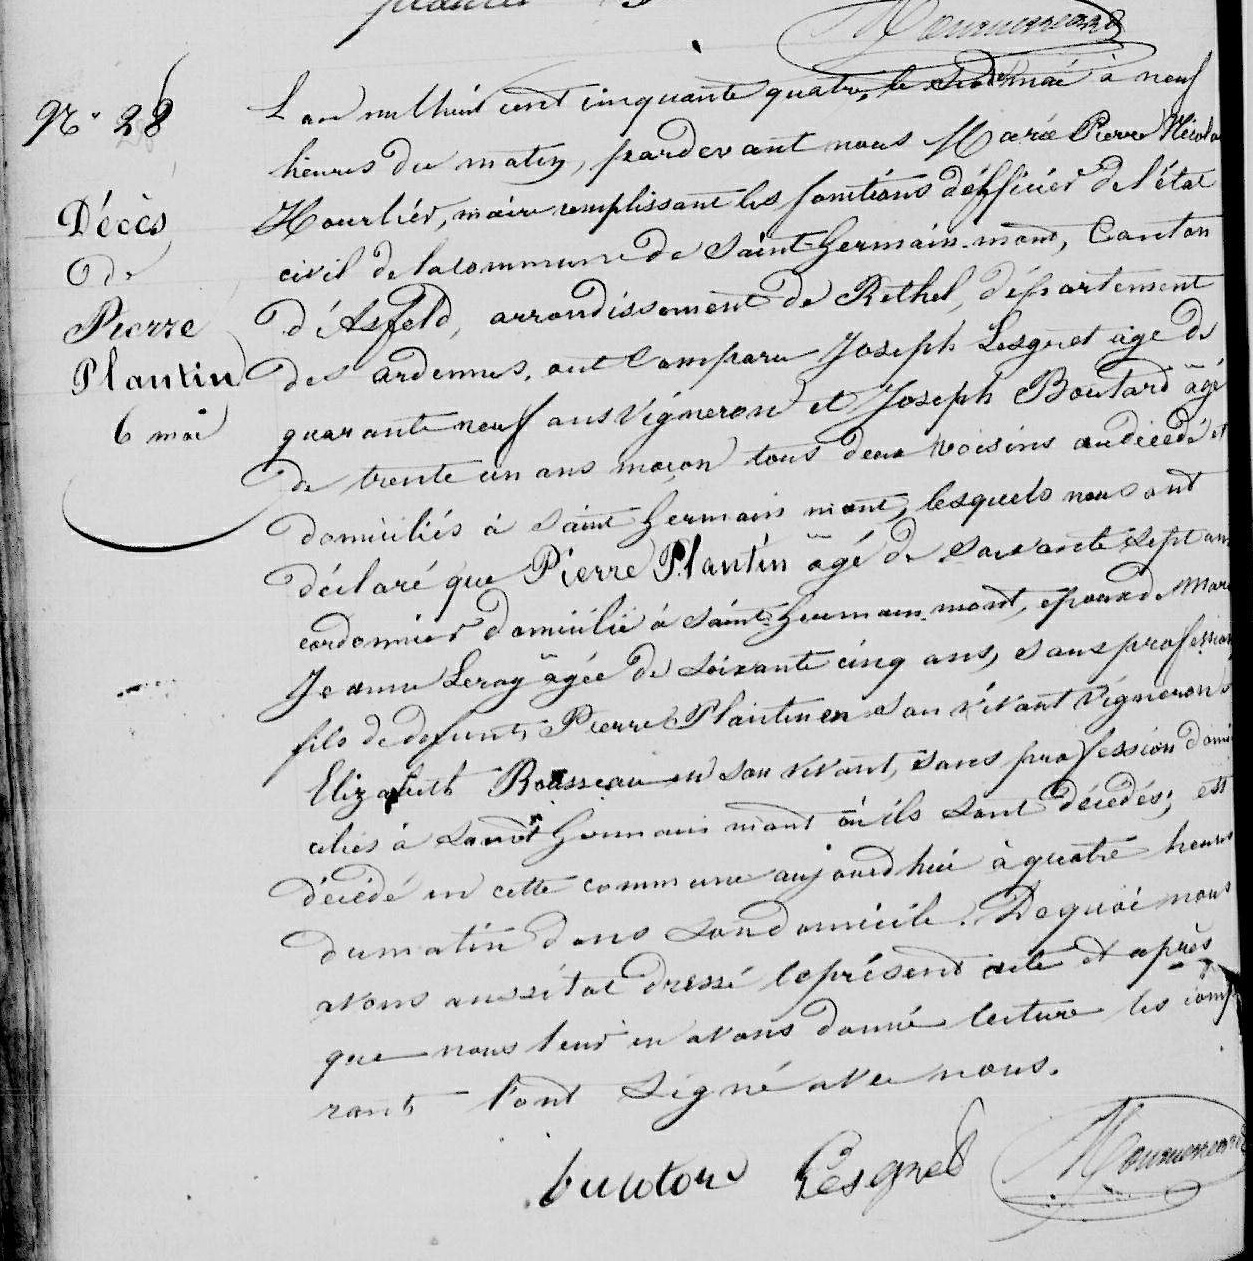 N° 28
Décès
de
Pierre
Plantin
6 mai
L'an mil huit cent cinquante quatre, le six mai à neuf
heures du matin, pardevant nous Marie Pierre Nicolas
Hourlier, maire remplissant les fonctions d'officier de l'état
civil de la commune de Saint-Germain-mont, Canton
d'Asfeld, arrondissement de Rethel, département
des ardennes, ont Comparu Joseph Lesgret âge de
quarante neuf ans Vigneron et Joseph Boutard âgé
de trente un ans maçon tous deux voisins du décédé et
domiciliés à Saint Germain mont, lesquels nous ont
déclaré que Pierre Plantin âgé de soixante sept ans
cordonnier domicilié à Saint-Germain-mont, époux de Marie
Jeanne Leroy âgée de soixante cinq ans, sans profession
fils de defunts Pierre Plantin en son vivant Vigneron &
Elizabeth Rousseau en son vivant, sans profession domi
ciliés à Saint Germain mont où ils sont décédés; est
décédé en cette commune aujourd'hui à quatre heures
du matin dans son domicile. De quoi nous
avons aussitot dressé le présent acte et après
que nous leur en avons donné lecture les compa
rants l'ont signé avec nous.
Lesgret